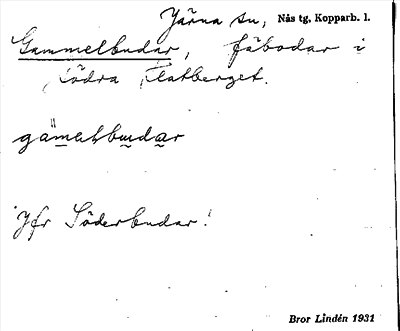 Järna sn, Nås tg, Kopparb. l.
Gammelbudar, fäbodar i
södra Flatberget.
Jfr Söderbudar!
Bror Lindén 1931